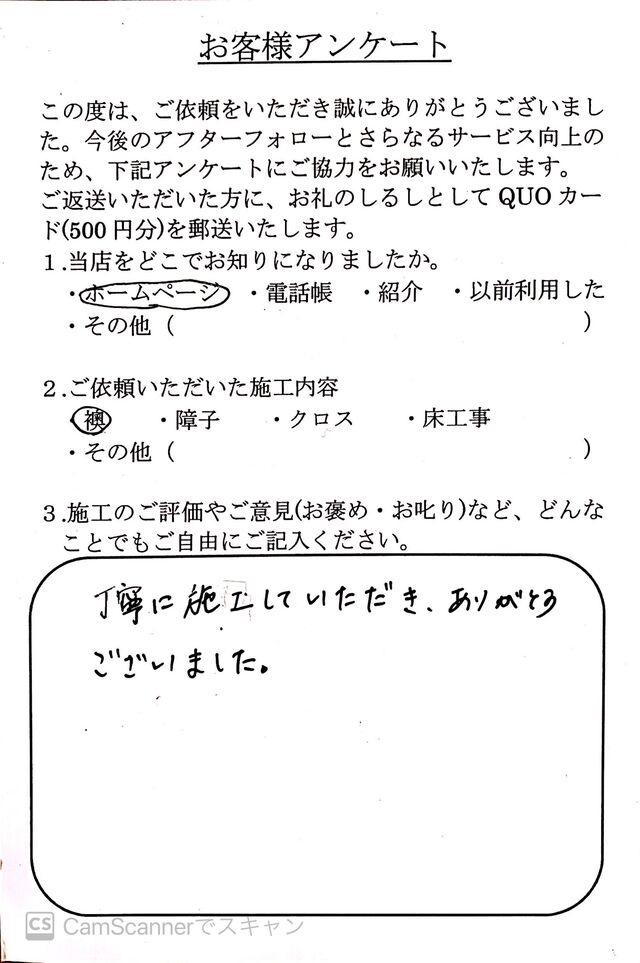 お客様アンケート
この度は、ご依頼をいただき誠にありがとうございまし
た。今後のアフターフォローとさらなるサービス向上の
ため、下記アンケートにご協力をお願いいたします。
ご返送いただいた方に、お礼のしるしとしてQUOカー
ド(500円分)を郵送いたします。
１.当店をどこでお知りになりましたか。
・ホームページ ・電話帳 ・紹介 ・以前利用した
・その他（ ）
２.ご依頼いただいた施工内容
・襖 ・障子 ・クロス ・床工事
・その他（ ）
３.施工のご評価やご意見(お褒め・お叱り)など、どんな
ことでもご自由にご記入ください。
丁寧に施工していただき、ありがとう
ございました。
CS CamScannerでスキャン